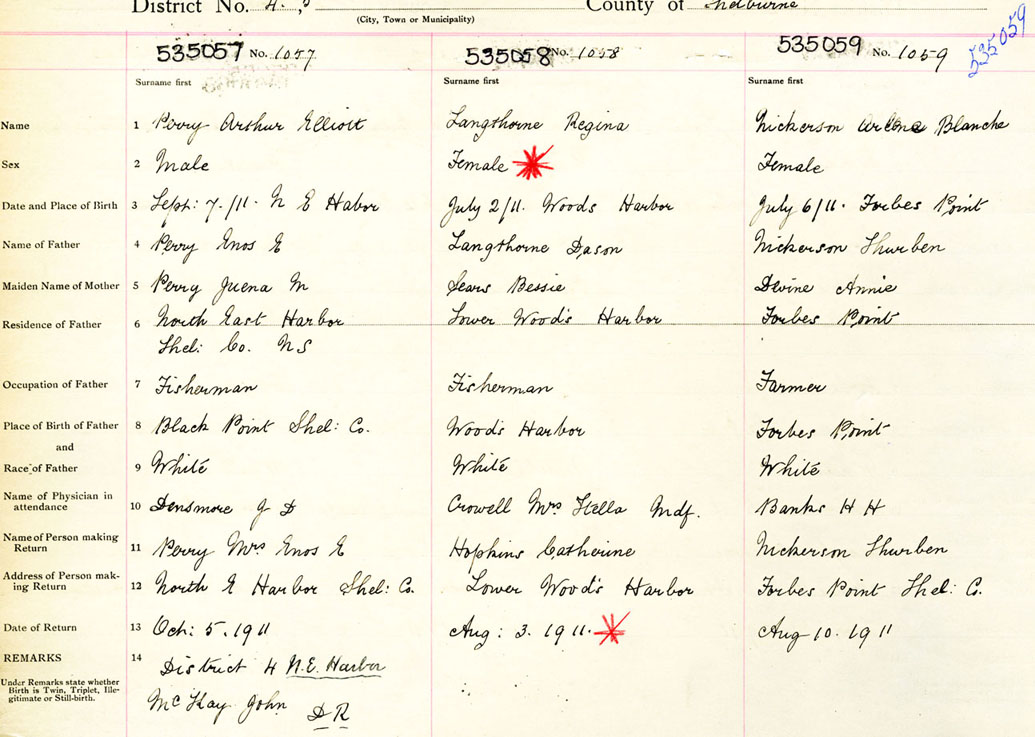 District No. 4. County of Shelburne
(City, Town or Municipality)
535057 No. 1057 535058 No. 1058 535059 No. 1059 535059
Surname first Surname first Surname first
Name 1 Perry Arthur Elliott Langthorne Regina Nickerson Arlene Blanche
Sex 2 Male Female Female
Date and Place of Birth 3 Sept: 7./11. N E Habor July 2/11. Woods Harbor July 6/11. Forbes Point
Name of Father 4 Perry Enos E Langthorne Dason Nickerson Shurben
Maiden Name of Mother 5 Perry Juena M Sears Bessie Devine Annie
Residence of Father 6 North East Harbor Lower Wood's Harbor Forbes Point
Shel: Co. N S
Occupation of Father 7 Fisherman Fisherman Farmer
Place of Birth of Father 8 Black Point Shel: Co. Wood's Harbor Forbes Point
and
Race of Father 9 White White White
Name of Physician in
attendance 10 Densmore G D Crowell Mrs Stella Mdf. Banks H H
Name of Person making
Return 11 Perry Mrs Enos E Hopkins Catherine Nickerson Shurben
Address of Person mak-
ing Return 12 North E Harbor Shel: Co. Lower Wood's Harbor Forbes Point Shel: Co.
Date of Return 13 Oct: 5. 1911 Aug: 3. 1911. Aug 10. 1911
REMARKS 14 District 4 N.E. Harbor
Under Remarks state whether
Birth is Twin, Triplet, Ille-
gitimate or Still-birth.
McKay John D R